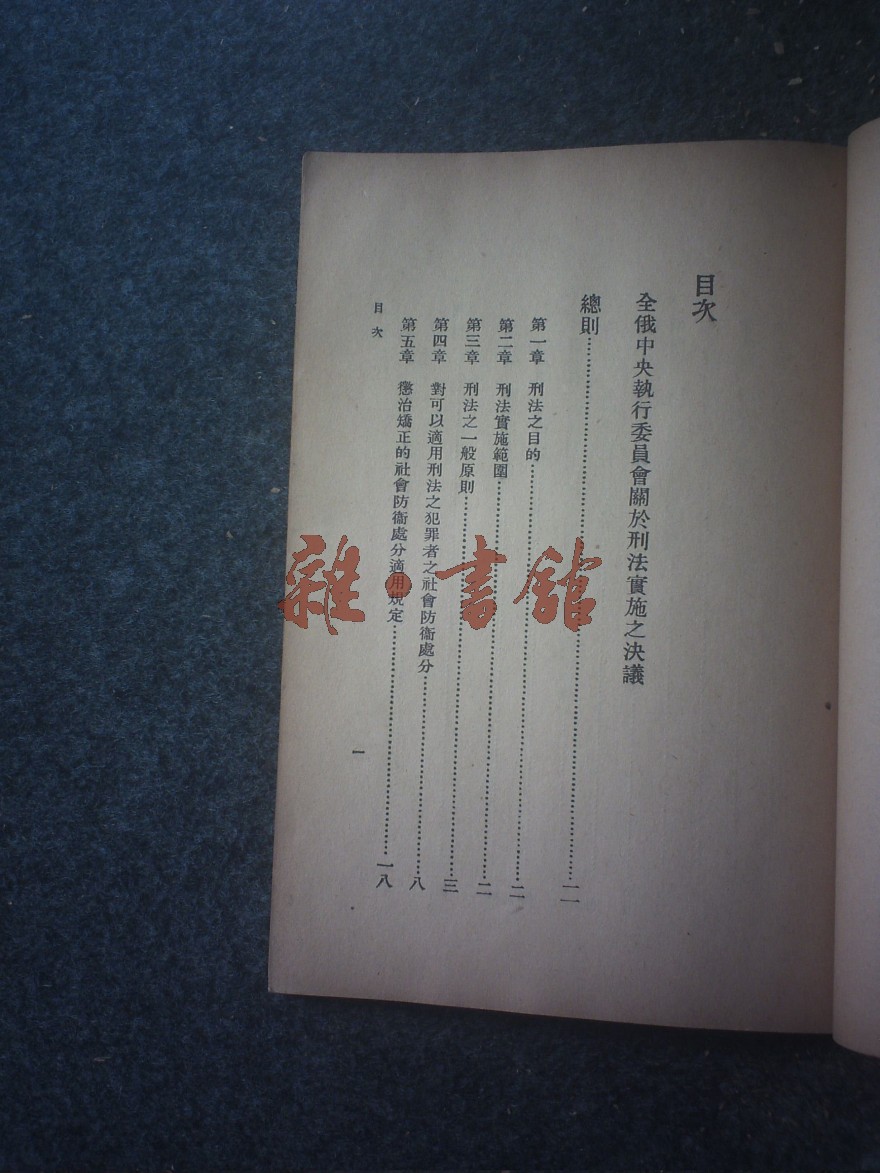 目次
全俄中央執行委員會關於刑法實施之決議
總則……二
第一章 刑法之目的……二
第二章 刑法實施範圍……二
第三章 刑法之一般原則……三
第四章 對可以適用刑法之犯罪者之社會防衞處分……八
第五章 懲治矯正的社會防衞處分適用規定……一八
目次
一
雜·書館